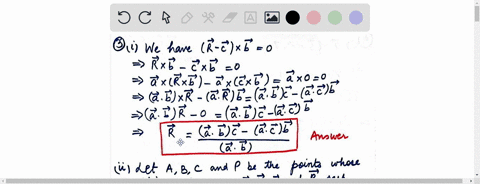 ③(i) We have (R⃗-c⃗)×b⃗=0
⇒ R⃗×b⃗ - c⃗×b⃗ =0
⇒ a⃗×(R⃗×b⃗)-a⃗×(c⃗×b⃗)= a⃗×0=0
⇒ (a⃗.b⃗)×R⃗ -(a⃗.R⃗)b⃗=(a⃗.b⃗)c⃗-(a⃗.c⃗)b⃗
⇒(a⃗.b⃗)R⃗ -0 =(a⃗.b⃗)c⃗-(a⃗.c⃗) b⃗
⇒ R⃗ = (a⃗.b⃗)c⃗-(a⃗.c⃗)b⃗ / (a⃗.b⃗) Answer
(ii) Let A, B, C and P be the points whose